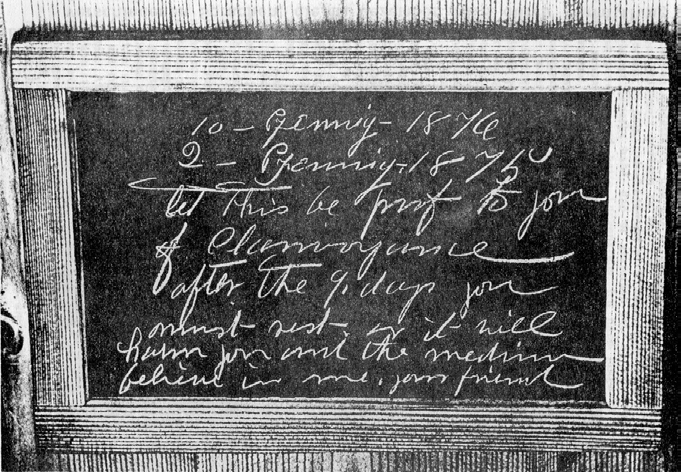 10 – Pfennig – 1876
2 – Pfennig – 1875
let this be proof to you
of Clairvoyance
after the 9. days you
must rest, or it will
harm you and the medium
believe in me. your friend